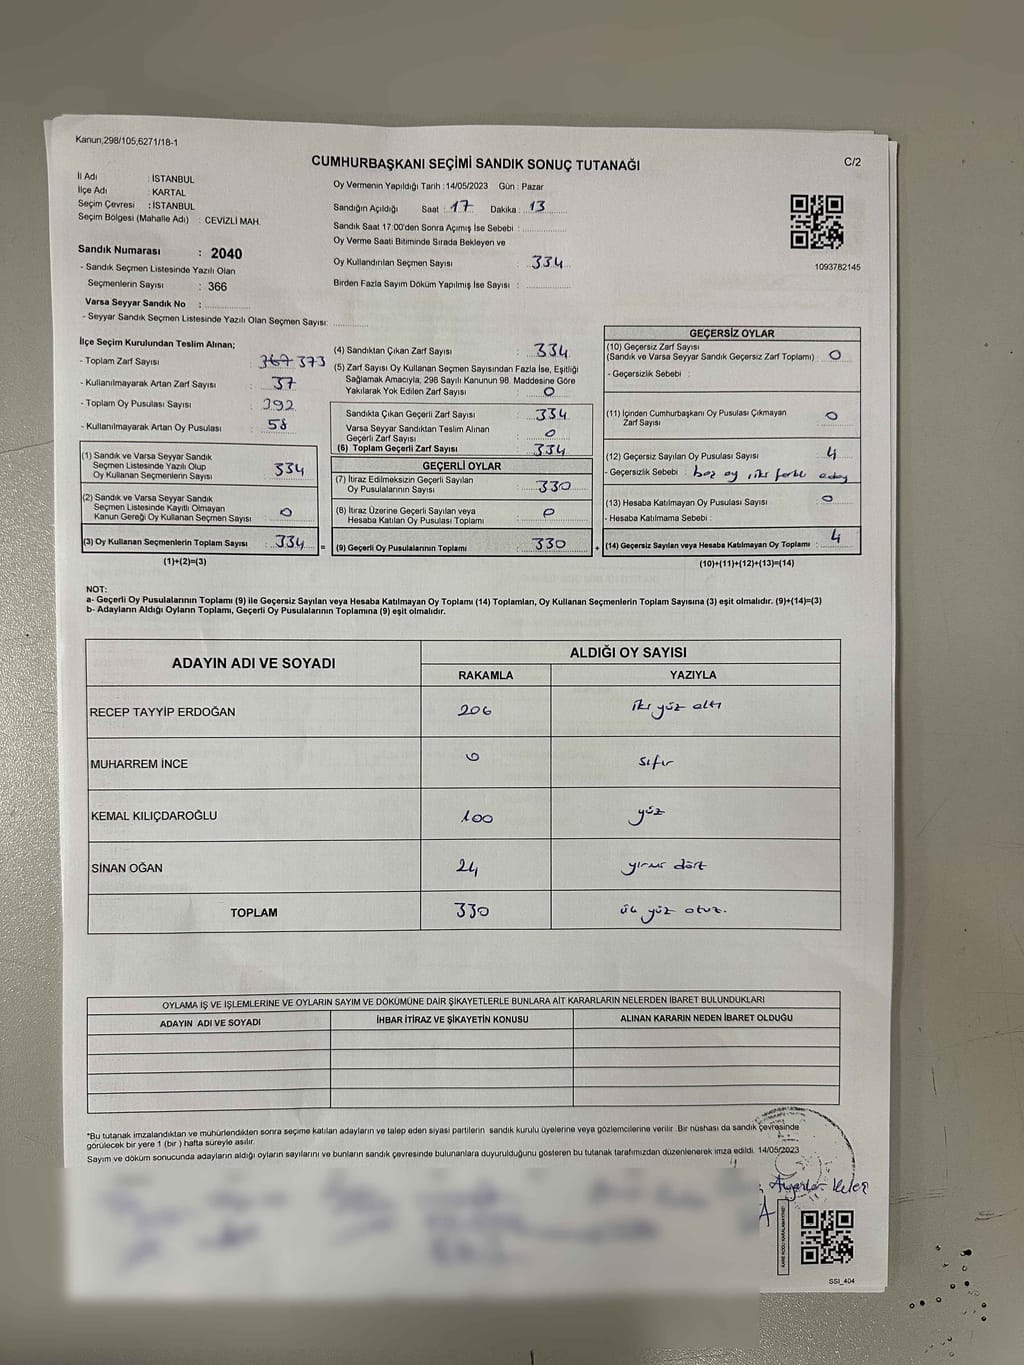 Kanun;298/105,6271/18-1
CUMHURBAŞKANI SEÇİMİ SANDIK SONUÇ TUTANAĞI
C/2
İl Adı : İSTANBUL
İlçe Adı : KARTAL
Seçim Çevresi : İSTANBUL
Seçim Bölgesi (Mahalle Adı) : CEVİZLİ MAH.
Sandık Numarası : 2040
- Sandık Seçmen Listesinde Yazılı Olan
Seçmenlerin Sayısı : 366
Varsa Seyyar Sandık No :
- Seyyar Sandık Seçmen Listesinde Yazılı Olan Seçmen Sayısı:
Oy Vermenin Yapıldığı Tarih : 14/05/2023 Gün : Pazar
Sandığın Açıldığı Saat : 17 Dakika : 13
Sandık Saat 17:00'den Sonra Açımış İse Sebebi :
Oy Verme Saati Bitiminde Sırada Bekleyen ve
Oy Kullandırılan Seçmen Sayısı : 334
Birden Fazla Sayım Döküm Yapılmış İse Sayısı :
1093782145
İlçe Seçim Kurulundan Teslim Alınan;
- Toplam Zarf Sayısı : 367 373
- Kullanılmayarak Artan Zarf Sayısı : 37
- Toplam Oy Pusulası Sayısı : 392
- Kullanılmayarak Artan Oy Pusulası : 58
(1) Sandık ve Varsa Seyyar Sandık
Seçmen Listesinde Yazılı Olup
Oy Kullanan Seçmenlerin Sayısı : 334
(2) Sandık ve Varsa Seyyar Sandık
Seçmen Listesinde Kayıtlı Olmayan
Kanun Gereği Oy Kullanan Seçmen Sayısı : 0
(3) Oy Kullanan Seçmenlerin Toplam Sayısı : 334 =
(1)+(2)=(3)
(4) Sandıktan Çıkan Zarf Sayısı : 334
(5) Zarf Sayısı Oy Kullanan Seçmen Sayısından Fazla İse, Eşitliği
Sağlamak Amacıyla, 298 Sayılı Kanunun 98. Maddesine Göre
Yakılarak Yok Edilen Zarf Sayısı : 0
Sandıkta Çıkan Geçerli Zarf Sayısı : 334
Varsa Seyyar Sandıktan Teslim Alınan
Geçerli Zarf Sayısı : 0
(6) Toplam Geçerli Zarf Sayısı : 334
GEÇERLİ OYLAR
(7) İtiraz Edilmeksizin Geçerli Sayılan
Oy Pusulalarının Sayısı : 330
(8) İtiraz Üzerine Geçerli Sayılan veya
Hesaba Katılan Oy Pusulası Toplamı : 0
(9) Geçerli Oy Pusulalarının Toplamı : 330 +
GEÇERSİZ OYLAR
(10) Geçersiz Zarf Sayısı
(Sandık ve Varsa Seyyar Sandık Geçersiz Zarf Toplamı) : 0
- Geçersizlik Sebebi :
(11) İçinden Cumhurbaşkanı Oy Pusulası Çıkmayan
Zarf Sayısı : 0
(12) Geçersiz Sayılan Oy Pusulası Sayısı : 4
- Geçersizlik Sebebi : boş oy, iki farklı aday
(13) Hesaba Katılmayan Oy Pusulası Sayısı : 0
- Hesaba Katılmama Sebebi :
(14) Geçersiz Sayılan veya Hesaba Katılmayan Oy Toplamı : 4
(10)+(11)+(12)+(13)=(14)
NOT:
a- Geçerli Oy Pusulalarının Toplamı (9) ile Geçersiz Sayılan veya Hesaba Katılmayan Oy Toplamı (14) Toplamları, Oy Kullanan Seçmenlerin Toplam Sayısına (3) eşit olmalıdır. (9)+(14)=(3)
b- Adayların Aldığı Oyların Toplamı, Geçerli Oy Pusulalarının Toplamına (9) eşit olmalıdır.
ADAYIN ADI VE SOYADI
ALDIĞI OY SAYISI
RAKAMLA YAZIYLA
RECEP TAYYİP ERDOĞAN 206 iki yüz altı
MUHARREM İNCE 0 sıfır
KEMAL KILIÇDAROĞLU 100 yüz
SİNAN OĞAN 24 yirmi dört
TOPLAM 330 üç yüz otuz.
OYLAMA İŞ VE İŞLEMLERİNE VE OYLARIN SAYIM VE DÖKÜMÜNE DAİR ŞİKAYETLERLE BUNLARA AİT KARARLARIN NELERDEN İBARET BULUNDUKLARI
ADAYIN ADI VE SOYADI İHBAR İTİRAZ VE ŞİKAYETİN KONUSU ALINAN KARARIN NEDEN İBARET OLDUĞU
*Bu tutanak imzalandıktan ve mühürlendikten sonra seçime katılan adayların ve talep eden siyasi partilerin sandık kurulu üyelerine veya gözlemcilerine verilir .Bir nüshası da sandık çevresinde
görülecek bir yere 1 (bir ) hafta süreyle asılır.
Sayım ve döküm sonucunda adayların aldığı oyların sayılarını ve bunların sandık çevresinde bulunanlara duyurulduğunu gösteren bu tutanak tarafımızdan düzenlenerek imza edildi. 14/05/2023
SSI_404